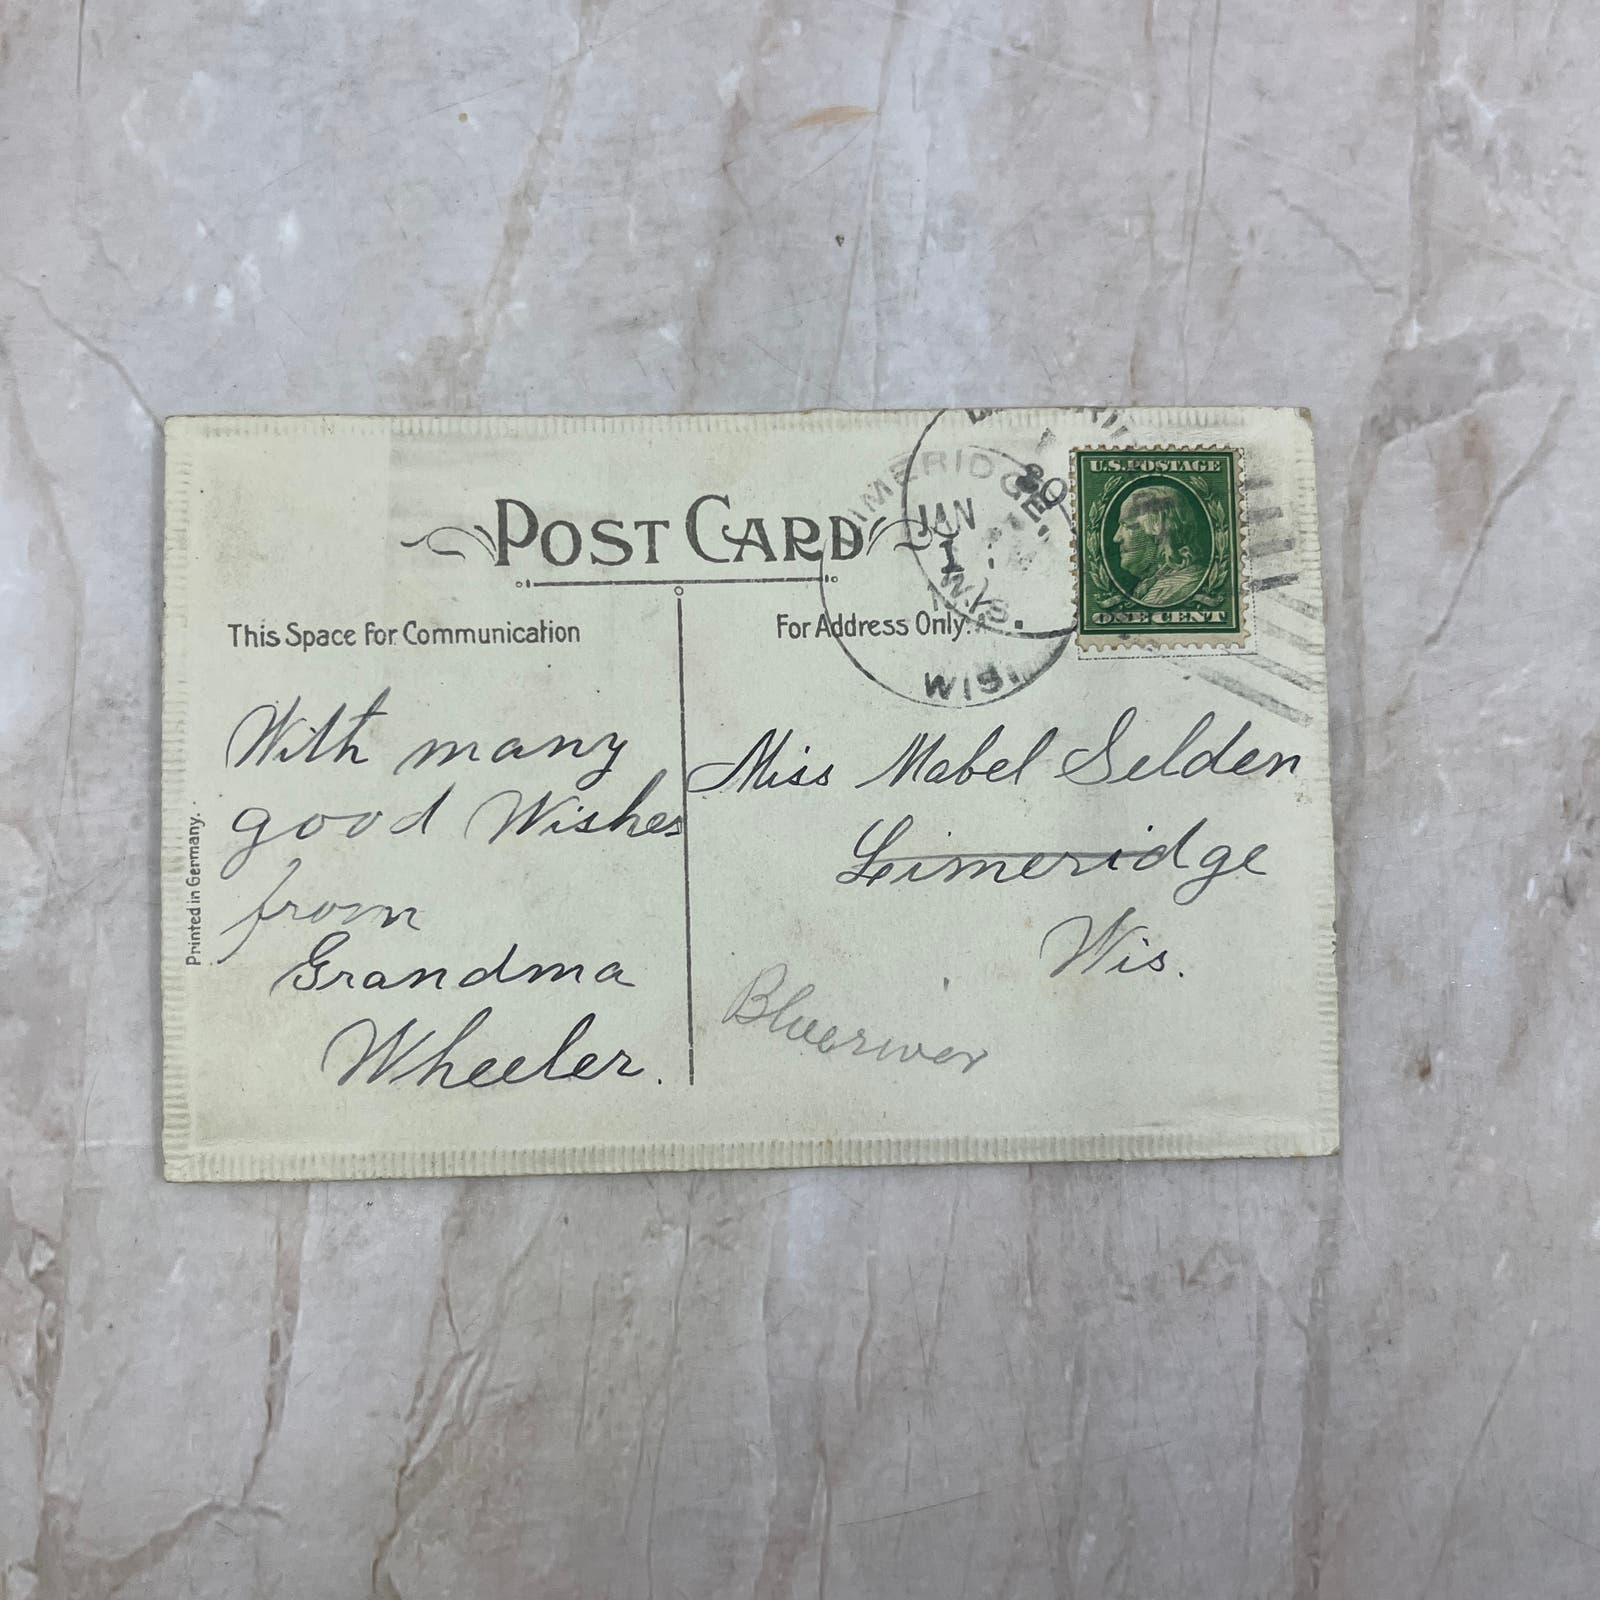 POST CARD
This Space For Communication
For Address Only.
With many
good Wishes
from
Grandma
Wheeler.
Printed in Germany.
Miss Mabel Selden
Limeridge
Wis.
Blueriver
IMERIDGE.
WIS.
JAN
1
30
WIS.
U.S. POSTAGE
ONE CENT